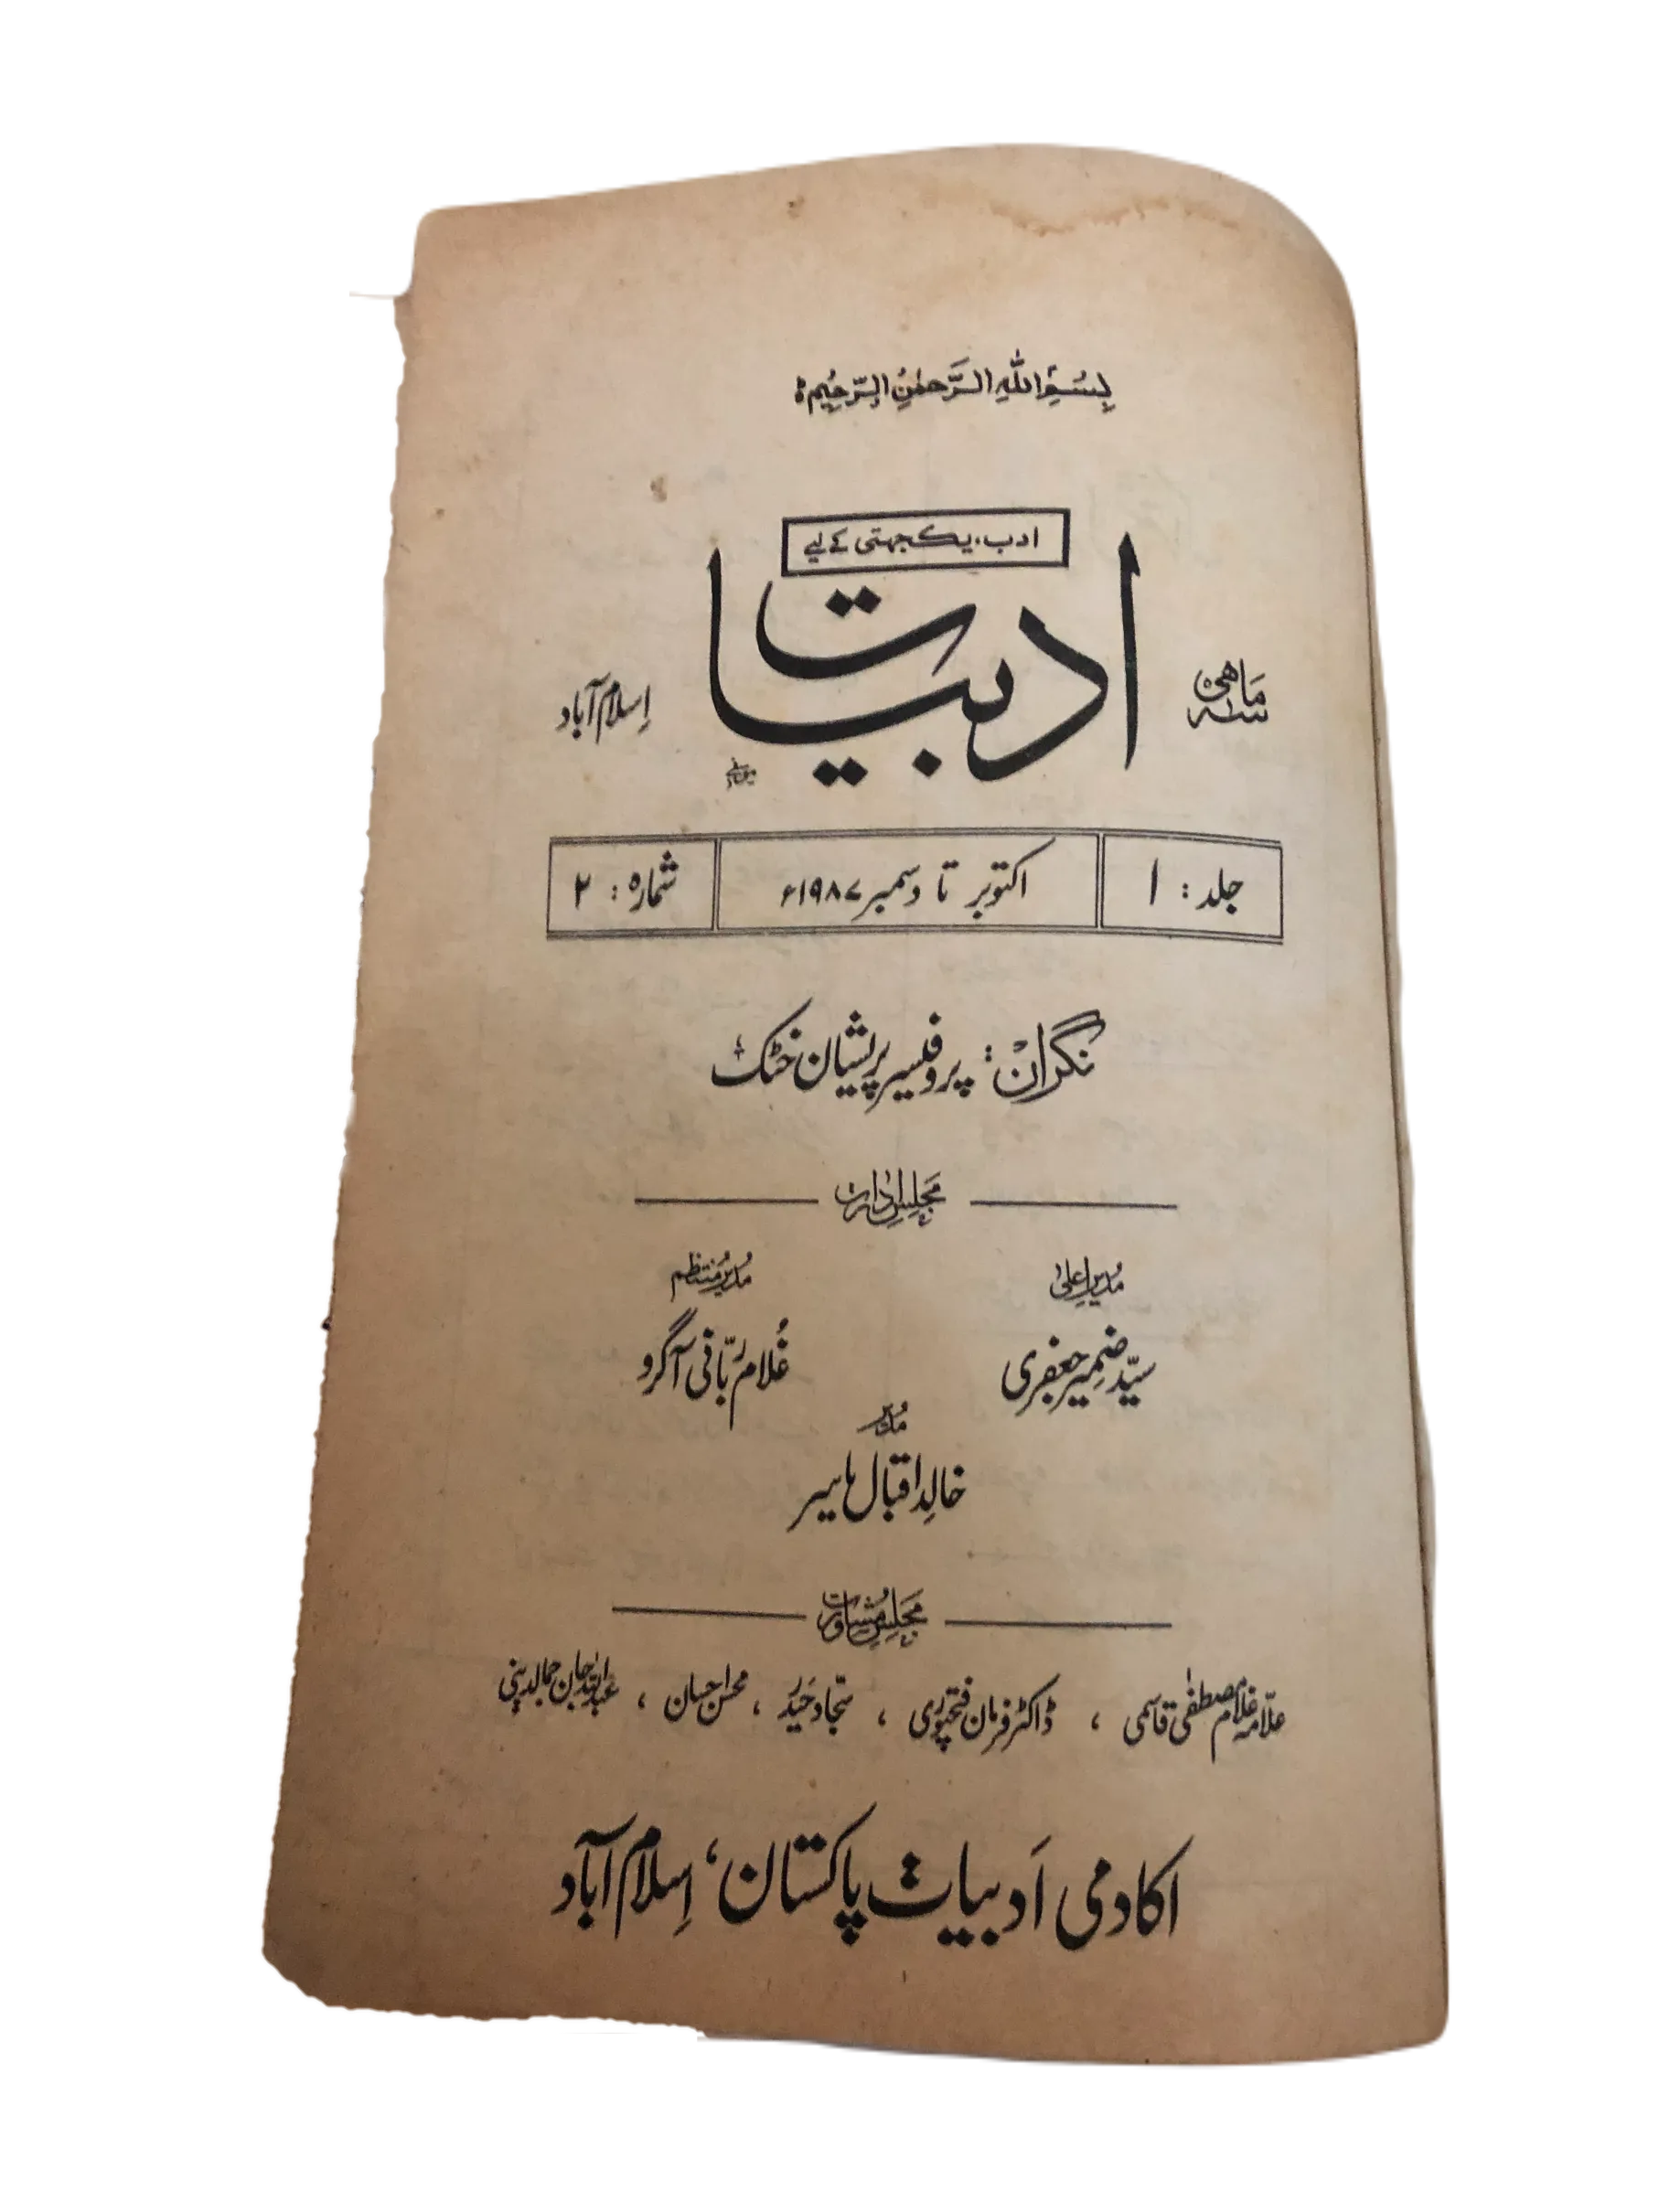 بِسْمِ اللهِ الرَّحمٰنِ الرَّحِیْمِ
ادب، یکجہتی کے لیے
سہ ماہی ادبیات اِسلام آباد
جلد : ۱ اکتوبر تا دسمبر ۱۹۸۷ء شماره : ۲
نگران : پروفیسر پریشان خٹک
مجلسِ ادارت
مُدیرِ اعلیٰ مُدیرِ مُنتظم
سیّد ضمیر جعفری غُلام ربّانی آگرو
مُدیر
خالد اقبال یاسر
مجلسِ مُشاورت
علّامہ غلام مصطفٰی قاسمی ، ڈاکٹر فرمان فتحپوری ، سجّاد حیدر ، محسن احسان ، عبداللہ جان جمالدینی
اکادمی اَدبیات پاکستان، اِسلام آباد